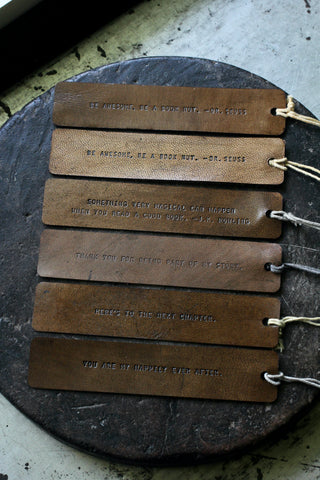 BE AWESOME, BE A BOOK NUT. -DR. SEUSS
BE AWESOME, BE A BOOK NUT. -DR. SEUSS
SOMETHING VERY MAGICAL CAN HAPPEN
WHEN YOU READ A GOOD BOOK. -J.K. ROWLING
THANK YOU FOR BEING PART OF MY STORY.
HERE'S TO THE NEXT CHAPTER.
YOU ARE MY HAPPILY EVER AFTER.